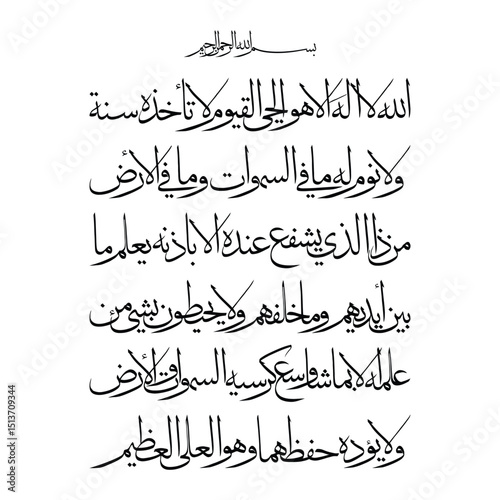 بسم الله الرحمن الرحيم
الله لا اله الا هو الحي القيوم لا تأخذه سنة
ولا نوم له ما في السموات وما في الأرض
من ذا الذي يشفع عنده الا باذنه يعلم ما
بين أيديهم وما خلفهم ولا يحيطون بشيء من
علمه الا بما شا وسع كرسيه السموات والأرض
ولا يؤده حفظهما وهو العلي العظيم
Adobe Stock | #1513709344